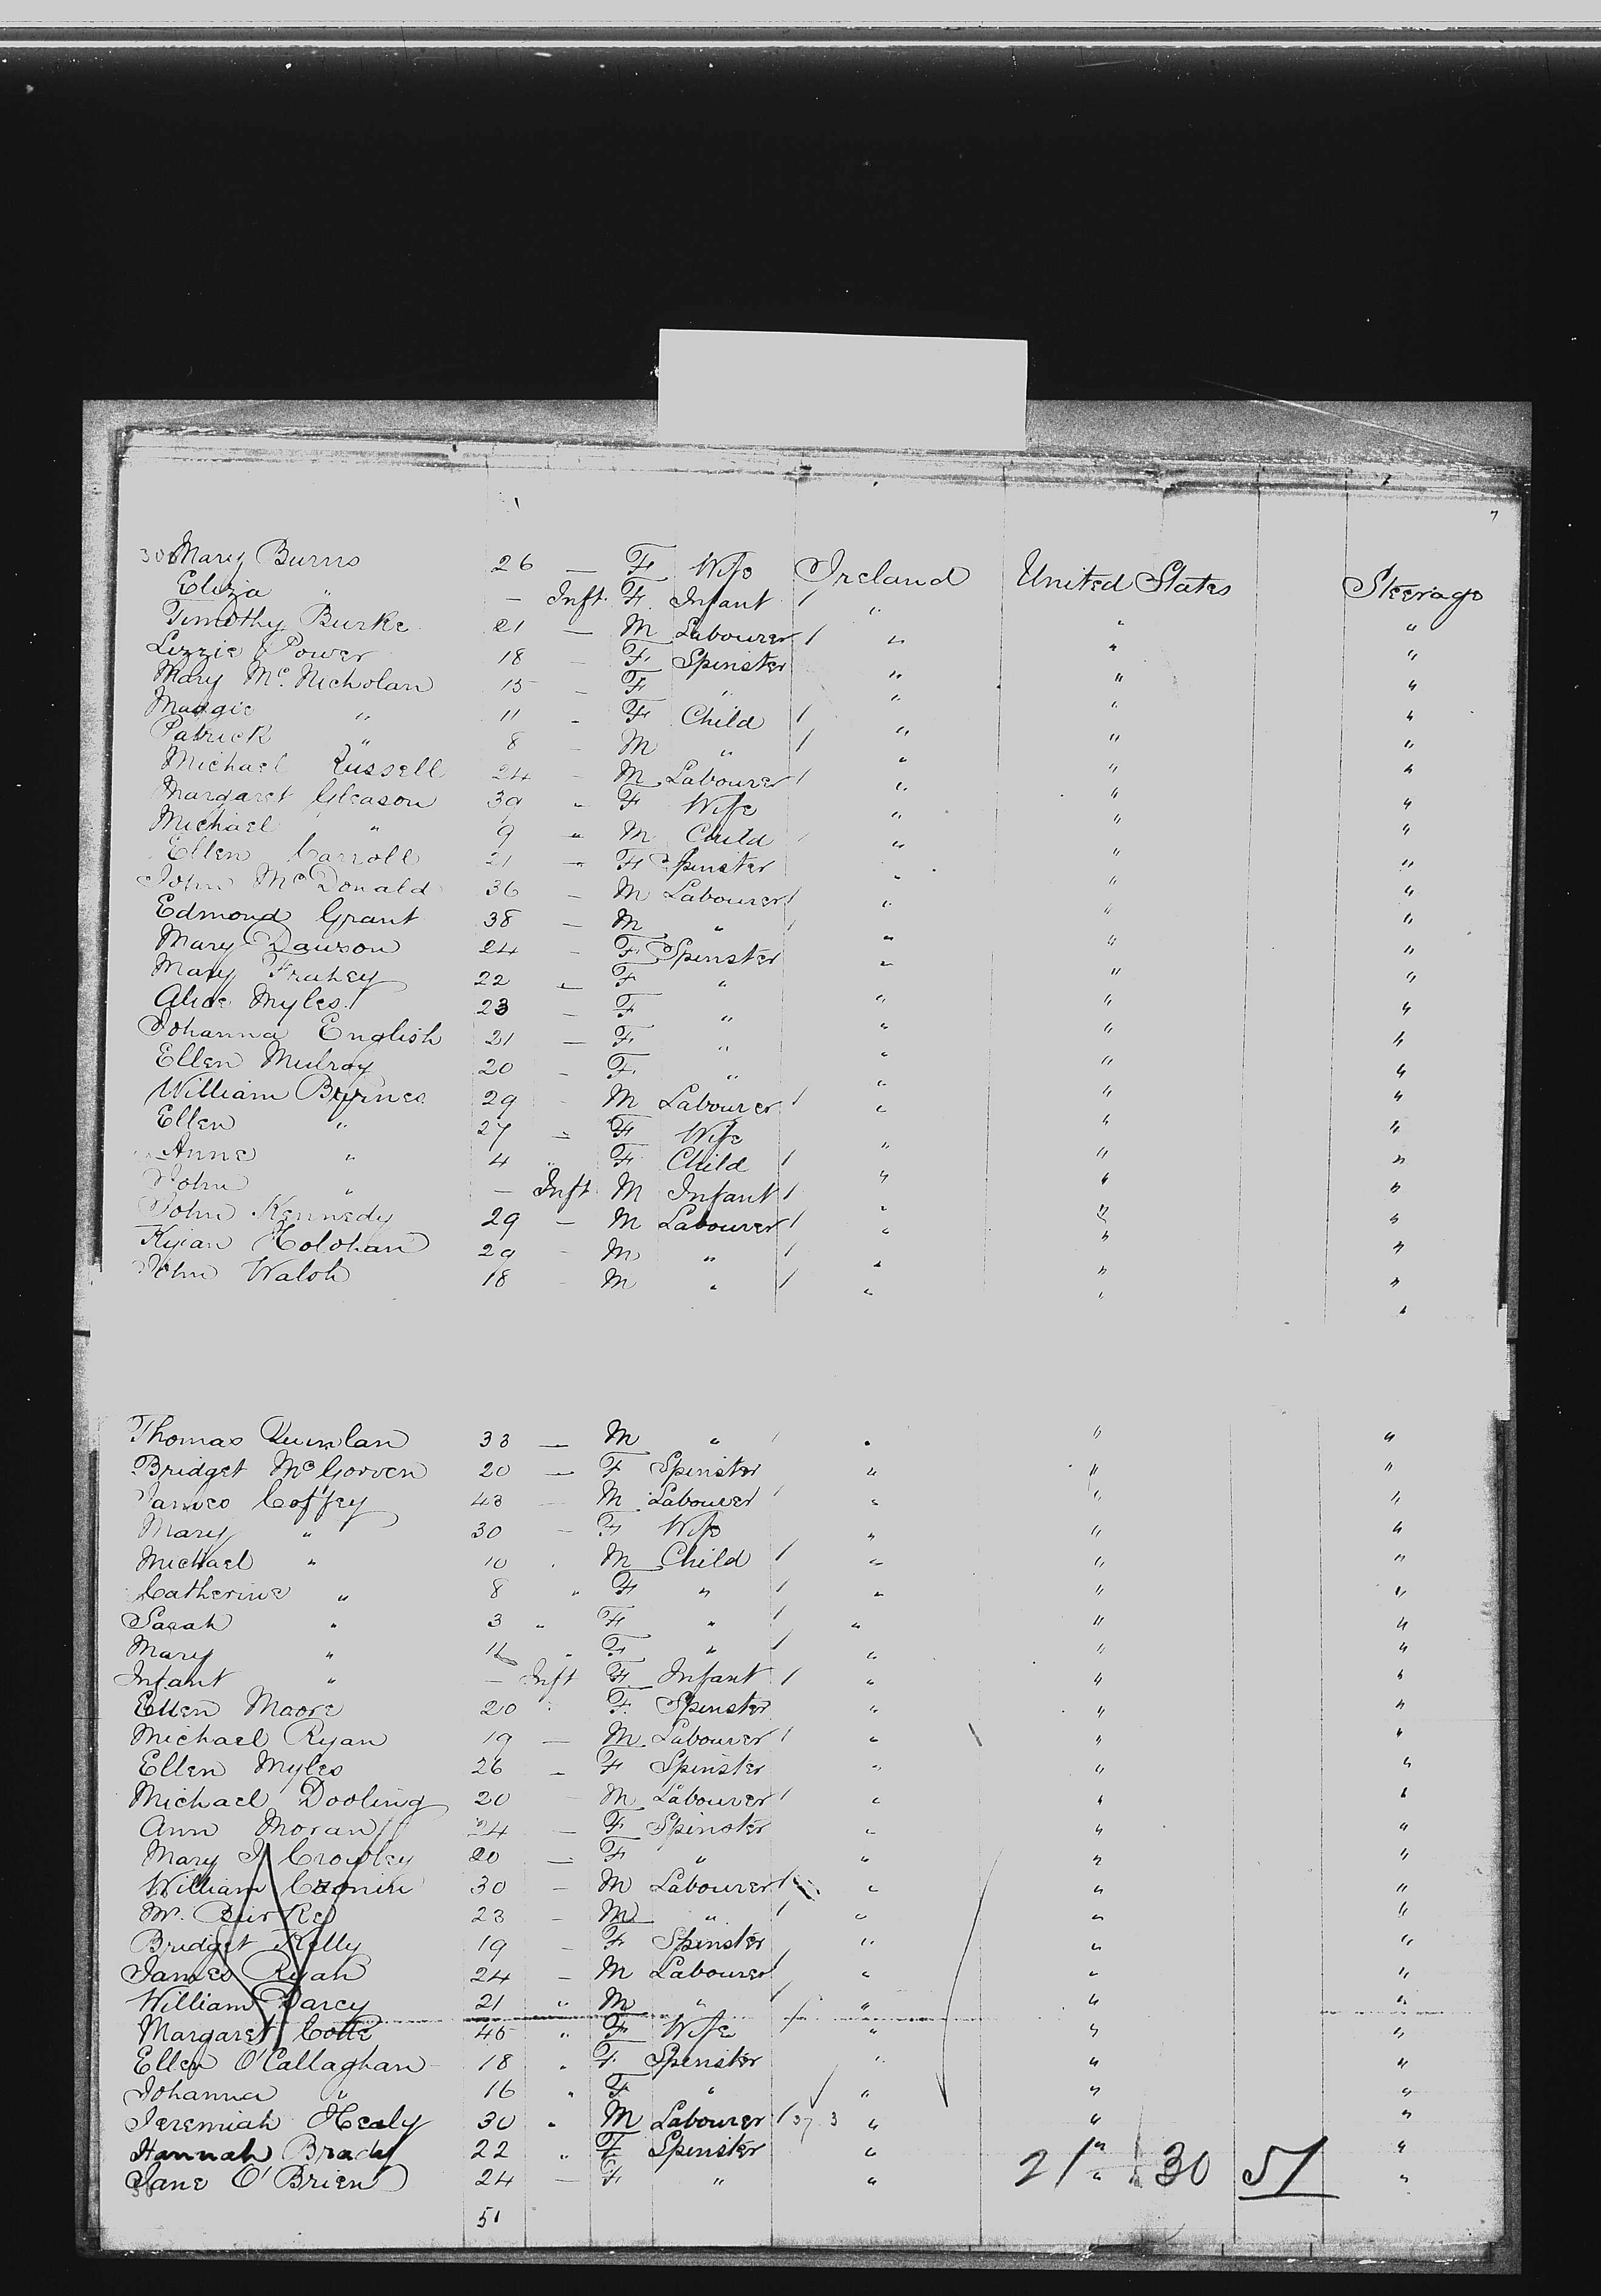 Mary Burns 26 — F Wife Ireland United States Steerage
Eliza " — Inft. F. Infant / " " "
Timothy Burke 21 — M Labourer / " " "
Lizzie Power 18 — F Spinster " " "
Mary Mc. Nicholan 15 — F " " " "
Maggie " 11 - F Child / " " "
Patrick " 8 — M " / " " "
Michael Russell 24 — M Labourer / " " "
Margaret Gleason 39 " F Wife " " "
Michael " 9 " M Child / " " "
Ellen Carroll 21 — F Spinster " " "
John McDonald 36 — M Labourer / " " "
Edmond Grant 38 — M " / " " "
Mary Dawson 24 — F Spinster " " "
Mary Frahey 22 — F " " " "
Alice Myles 23 — F " " " "
Johanna English 21 — F " " " "
Ellen Mulroy 20 — F " " " "
William Byrnes 29 - M Labourer / " " "
Ellen " 27 — F Wife " " "
Anne " 4 " F Child / " " "
John " — Inft M Infant / " " "
John Kennedy 29 — M Labourer / " " "
Kyran Holohan 29 - M " / " " "
John Walsh 18 — M " / " " "
Thomas Quinlan 33 — M " / " " "
Bridget McGorven 20 — F Spinster " " "
James Coffey 43 — M Labourer / " " "
Mary " 30 — F Wife " " "
Michael " 10 . M Child / " " "
Catherine " 8 " F " / " " "
Sarah " 3 " F " / " " "
Mary " " F " / " " "
Infant " — Inft F Infant / " " "
Ellen Moore 20 " F. Spinster " " "
Michael Ryan 19 — M Labourer / " " "
Ellen Myles 26 — F Spinster " " "
Michael Dooling 20 — M Labourer / " " "
Ann Moran 24 — F Spinster " " "
Mary J Crowley 20 — F " " " "
William Cronin 30 — M Labourer / " " "
Wm. Burke 23 — M " / " " "
Bridget Kelly 19 — F Spinster " " "
James Ryan 24 — M Labourer / " " "
William Darcy 21 " M " / " " "
Margaret 45 " F Wife " " "
Ellen O'Callaghan 18 " F Spinster " " "
Johanna " 16 " F " " " "
Jeremiah Healy 30 " M Labourer / 37 3 " " "
Hannah Brady 22 " F Spinster " " "
Jane O'Brien 24 — F " " 21 " 30 51 "
51